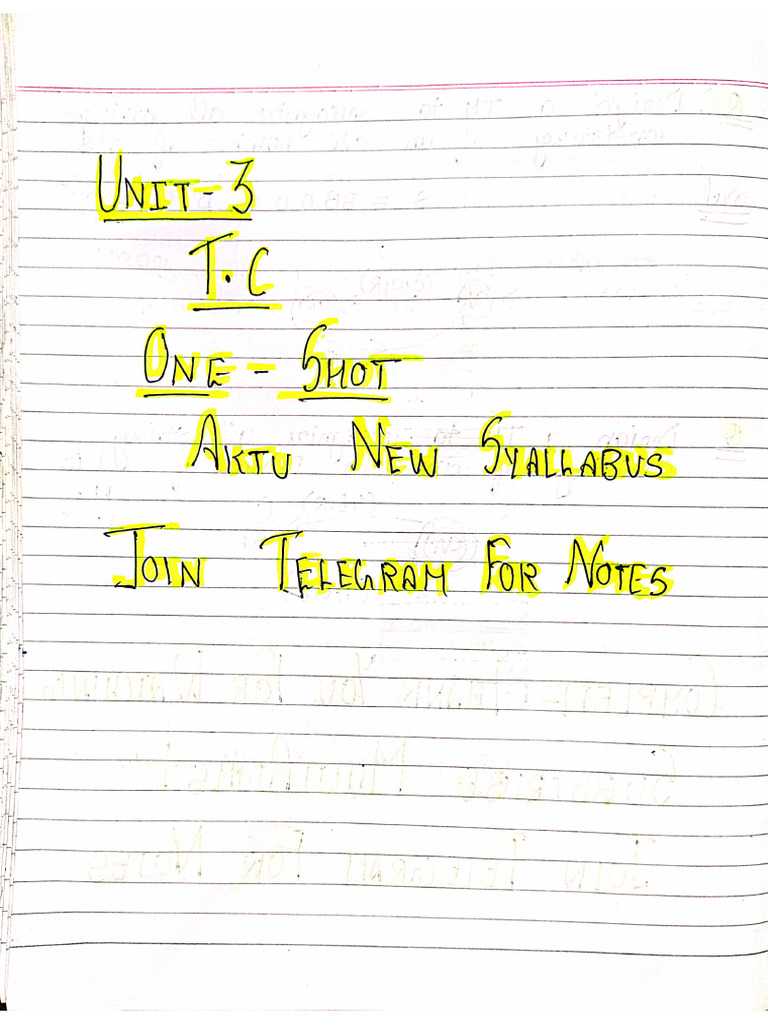 UNIT-3
T.C
ONE-SHOT
AKTU NEW SYALLABUS
JOIN TELEGRAM FOR NOTES